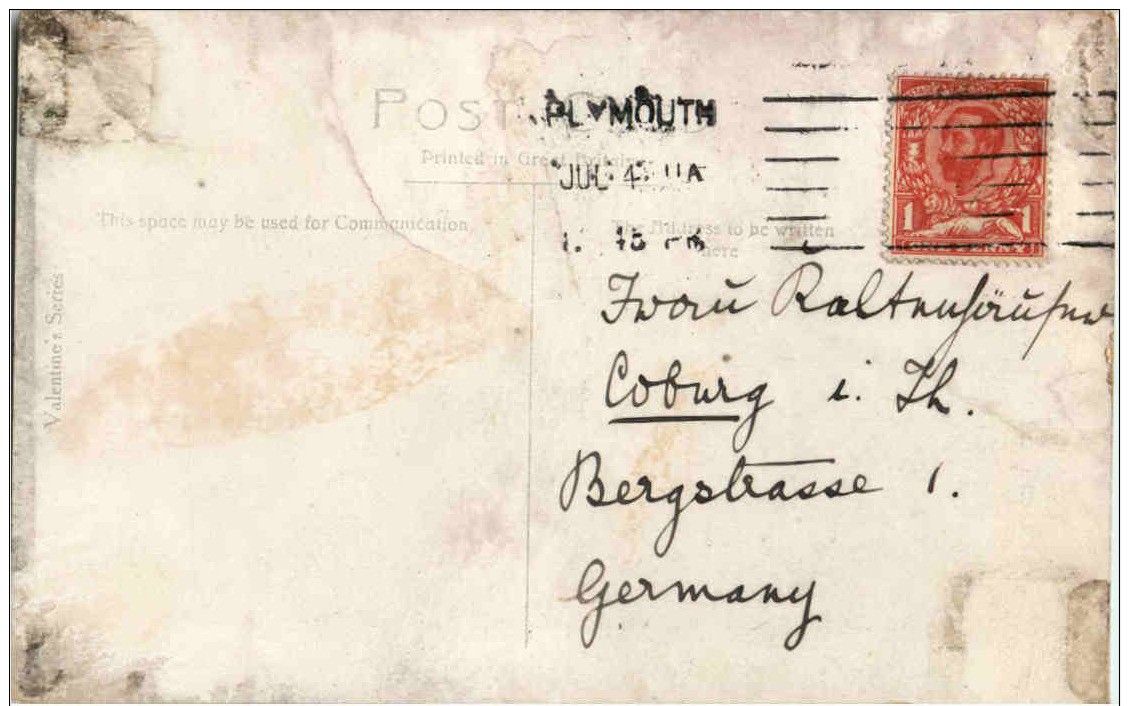 POST
PLYMOUTH
Printed in Great Britain
JUL 4 11A
This space may be used for Communication
The Address to be written
here
15 PM
1 1
Valentine's Series
Frau
Coburg i. Th.
Bergstrasse 1.
Germany